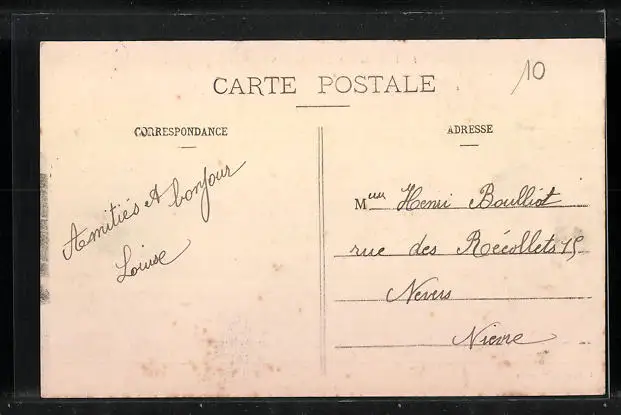 10
CARTE POSTALE
CORRESPONDANCE
ADRESSE
Amitiés et bonjour
Louise
Henri Boulliot
rue des Récollets 15
Nevers
Nievre